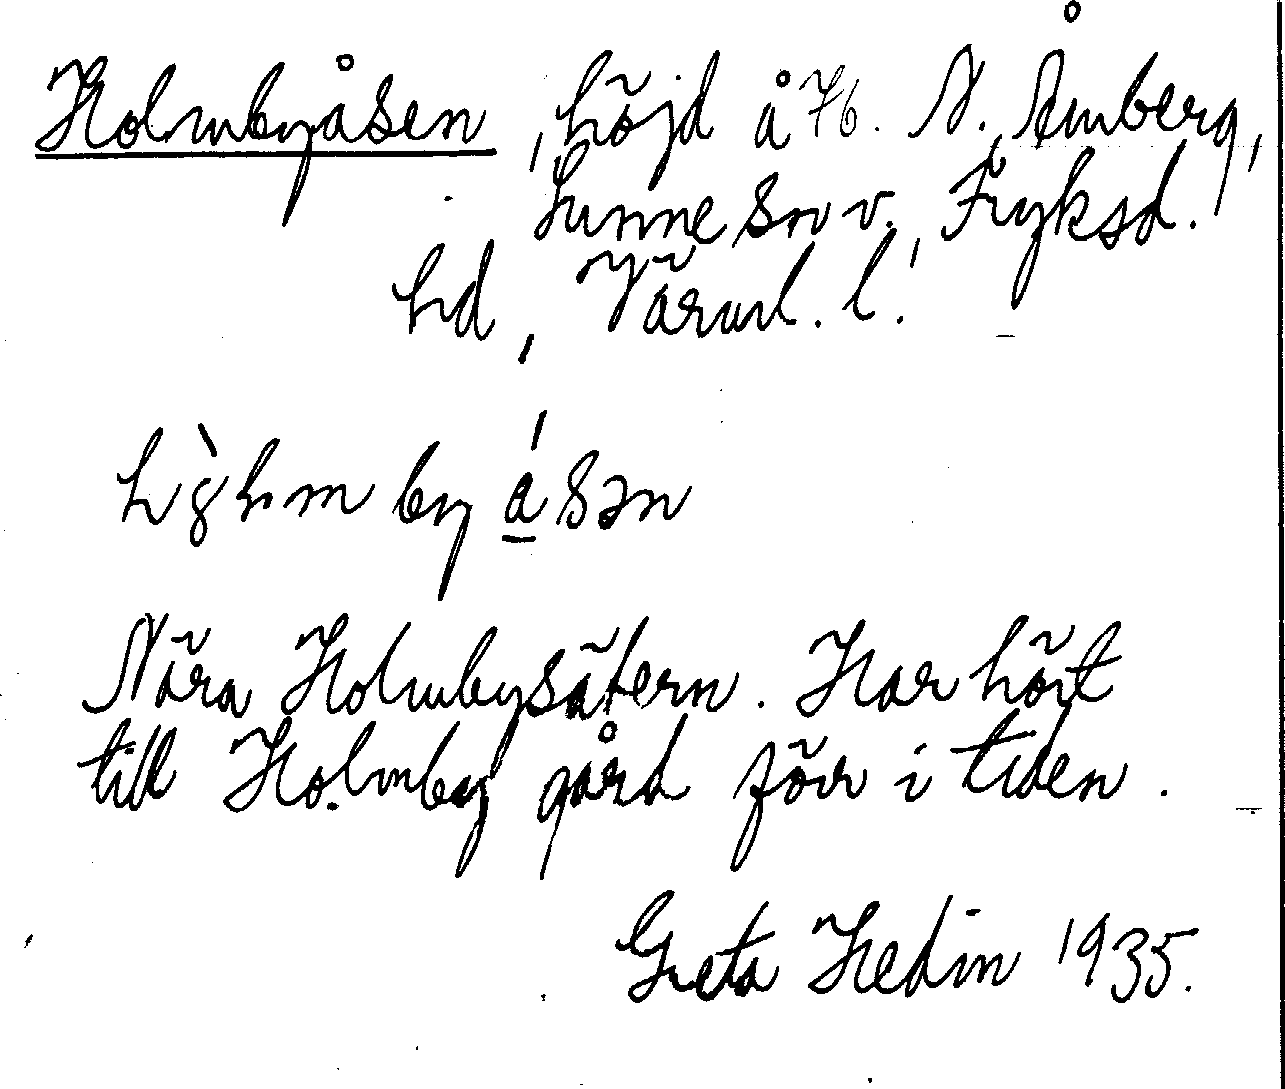 Holmbyåsen, höjd å Hb. N. Åmberg,
Sunne sn v. Fryksd.
hd, Värml. l.
Nära Holmbysätern. Har hört
till Holmby gård förr i tiden.
Greta Hedin 1935.